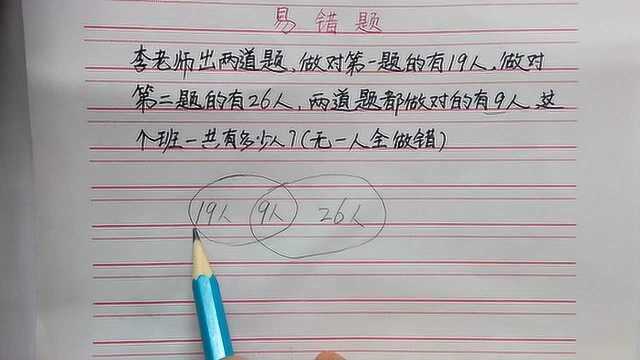 易错题
李老师出两道题,做对第一题的有19人,做对
第二题的有26人,两道题都做对的有9人,这
个班一共有多少人?(无一人全做错)
19人 9人 26人